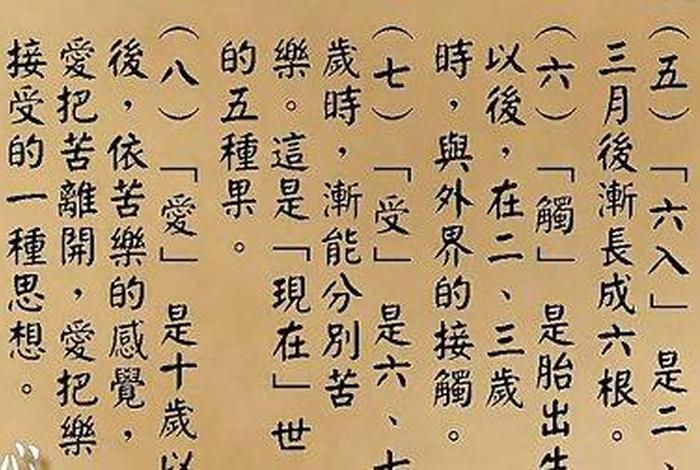 （五）「六入」是二、
三月後漸長成六根。
（六）「觸」是胎出生
以後，在二、三歲
時，與外界的接觸。
（七）「受」是六、七
歲時，漸能分別苦
樂。這是「現在」世
的五種果。
（八）「愛」是十歲以
後，依苦樂的感覺，
愛把苦離開，愛把樂
接受的一種思想。